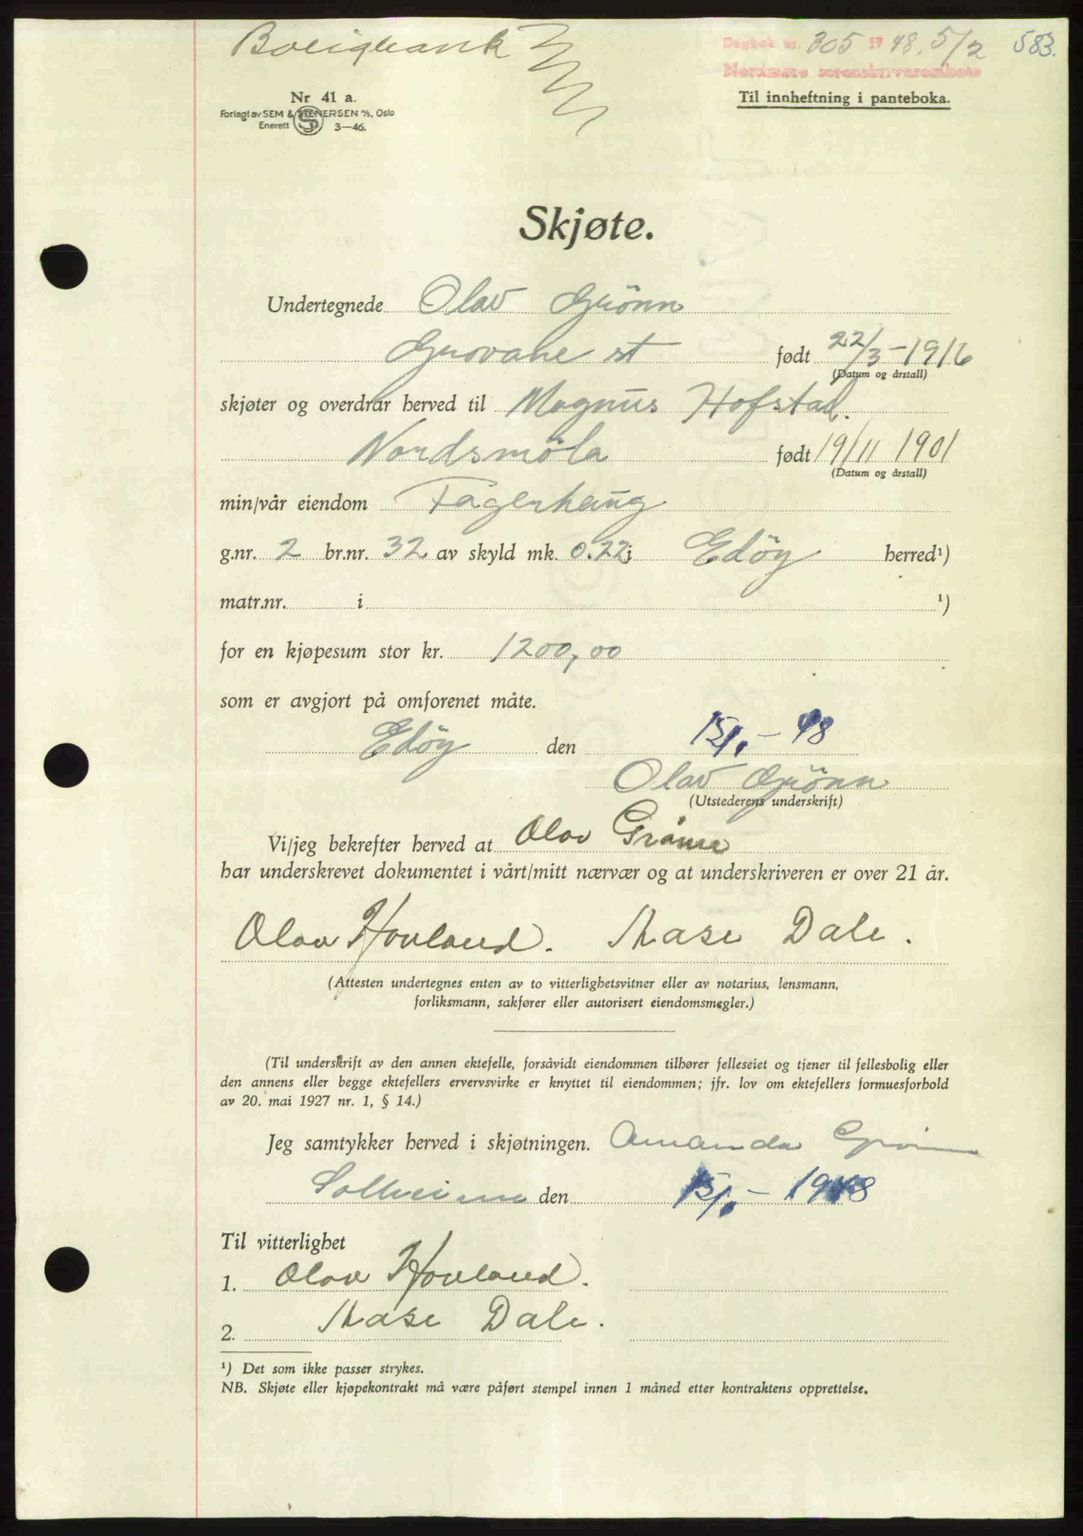 Boligbank
Dagbok nr. 305 19 48. 5/2 583.
Nordmøre sorenskriverembete
Nr 41 a.
Forlagt av SEM & STENERSEN A/S, Oslo
Enerett 3—46.
Til innheftning i panteboka.
Skjøte.
Undertegnede Olav Grönn
Grovane st født 22/3-1916
(Datum og årstall)
skjøter og overdrar herved til Magnus Hofstad.
Nordsmöla født 19/11 1901
(Datum og årstall)
min/vår eiendom Fagerhaug
g.nr. 2 br.nr. 32 av skyld mk. 0.22 i Edöy herred¹)
matr.nr. i ¹)
for en kjøpesum stor kr. 1200,00
som er avgjort på omforenet måte.
Edöy den 15/1 - 48
Olav Grönn
(Utstederens underskrift)
Vi/jeg bekrefter herved at Olav Grönn
har underskrevet dokumentet i vårt/mitt nærvær og at underskriveren er over 21 år.
Olav Hovland. Aase Dale.
(Attesten undertegnes enten av to vitterlighetsvitner eller av notarius, lensmann,
forliksmann, sakfører eller autorisert eiendomsmegler.)
(Til underskrift av den annen ektefelle, forsåvidt eiendommen tilhører felleseiet og tjener til fellesbolig eller
den annens eller begge ektefellers ervervsvirke er knyttet til eiendommen; jfr. lov om ektefellers formuesforhold
av 20. mai 1927 nr. 1, § 14.)
Jeg samtykker herved i skjøtningen. Amanda Grönn
den 15/1 - 1948
Til vitterlighet
1. Olav Hovland.
2. Aase Dale.
¹) Det som ikke passer strykes.
NB. Skjøte eller kjøpekontrakt må være påført stempel innen 1 måned etter kontraktens opprettelse.